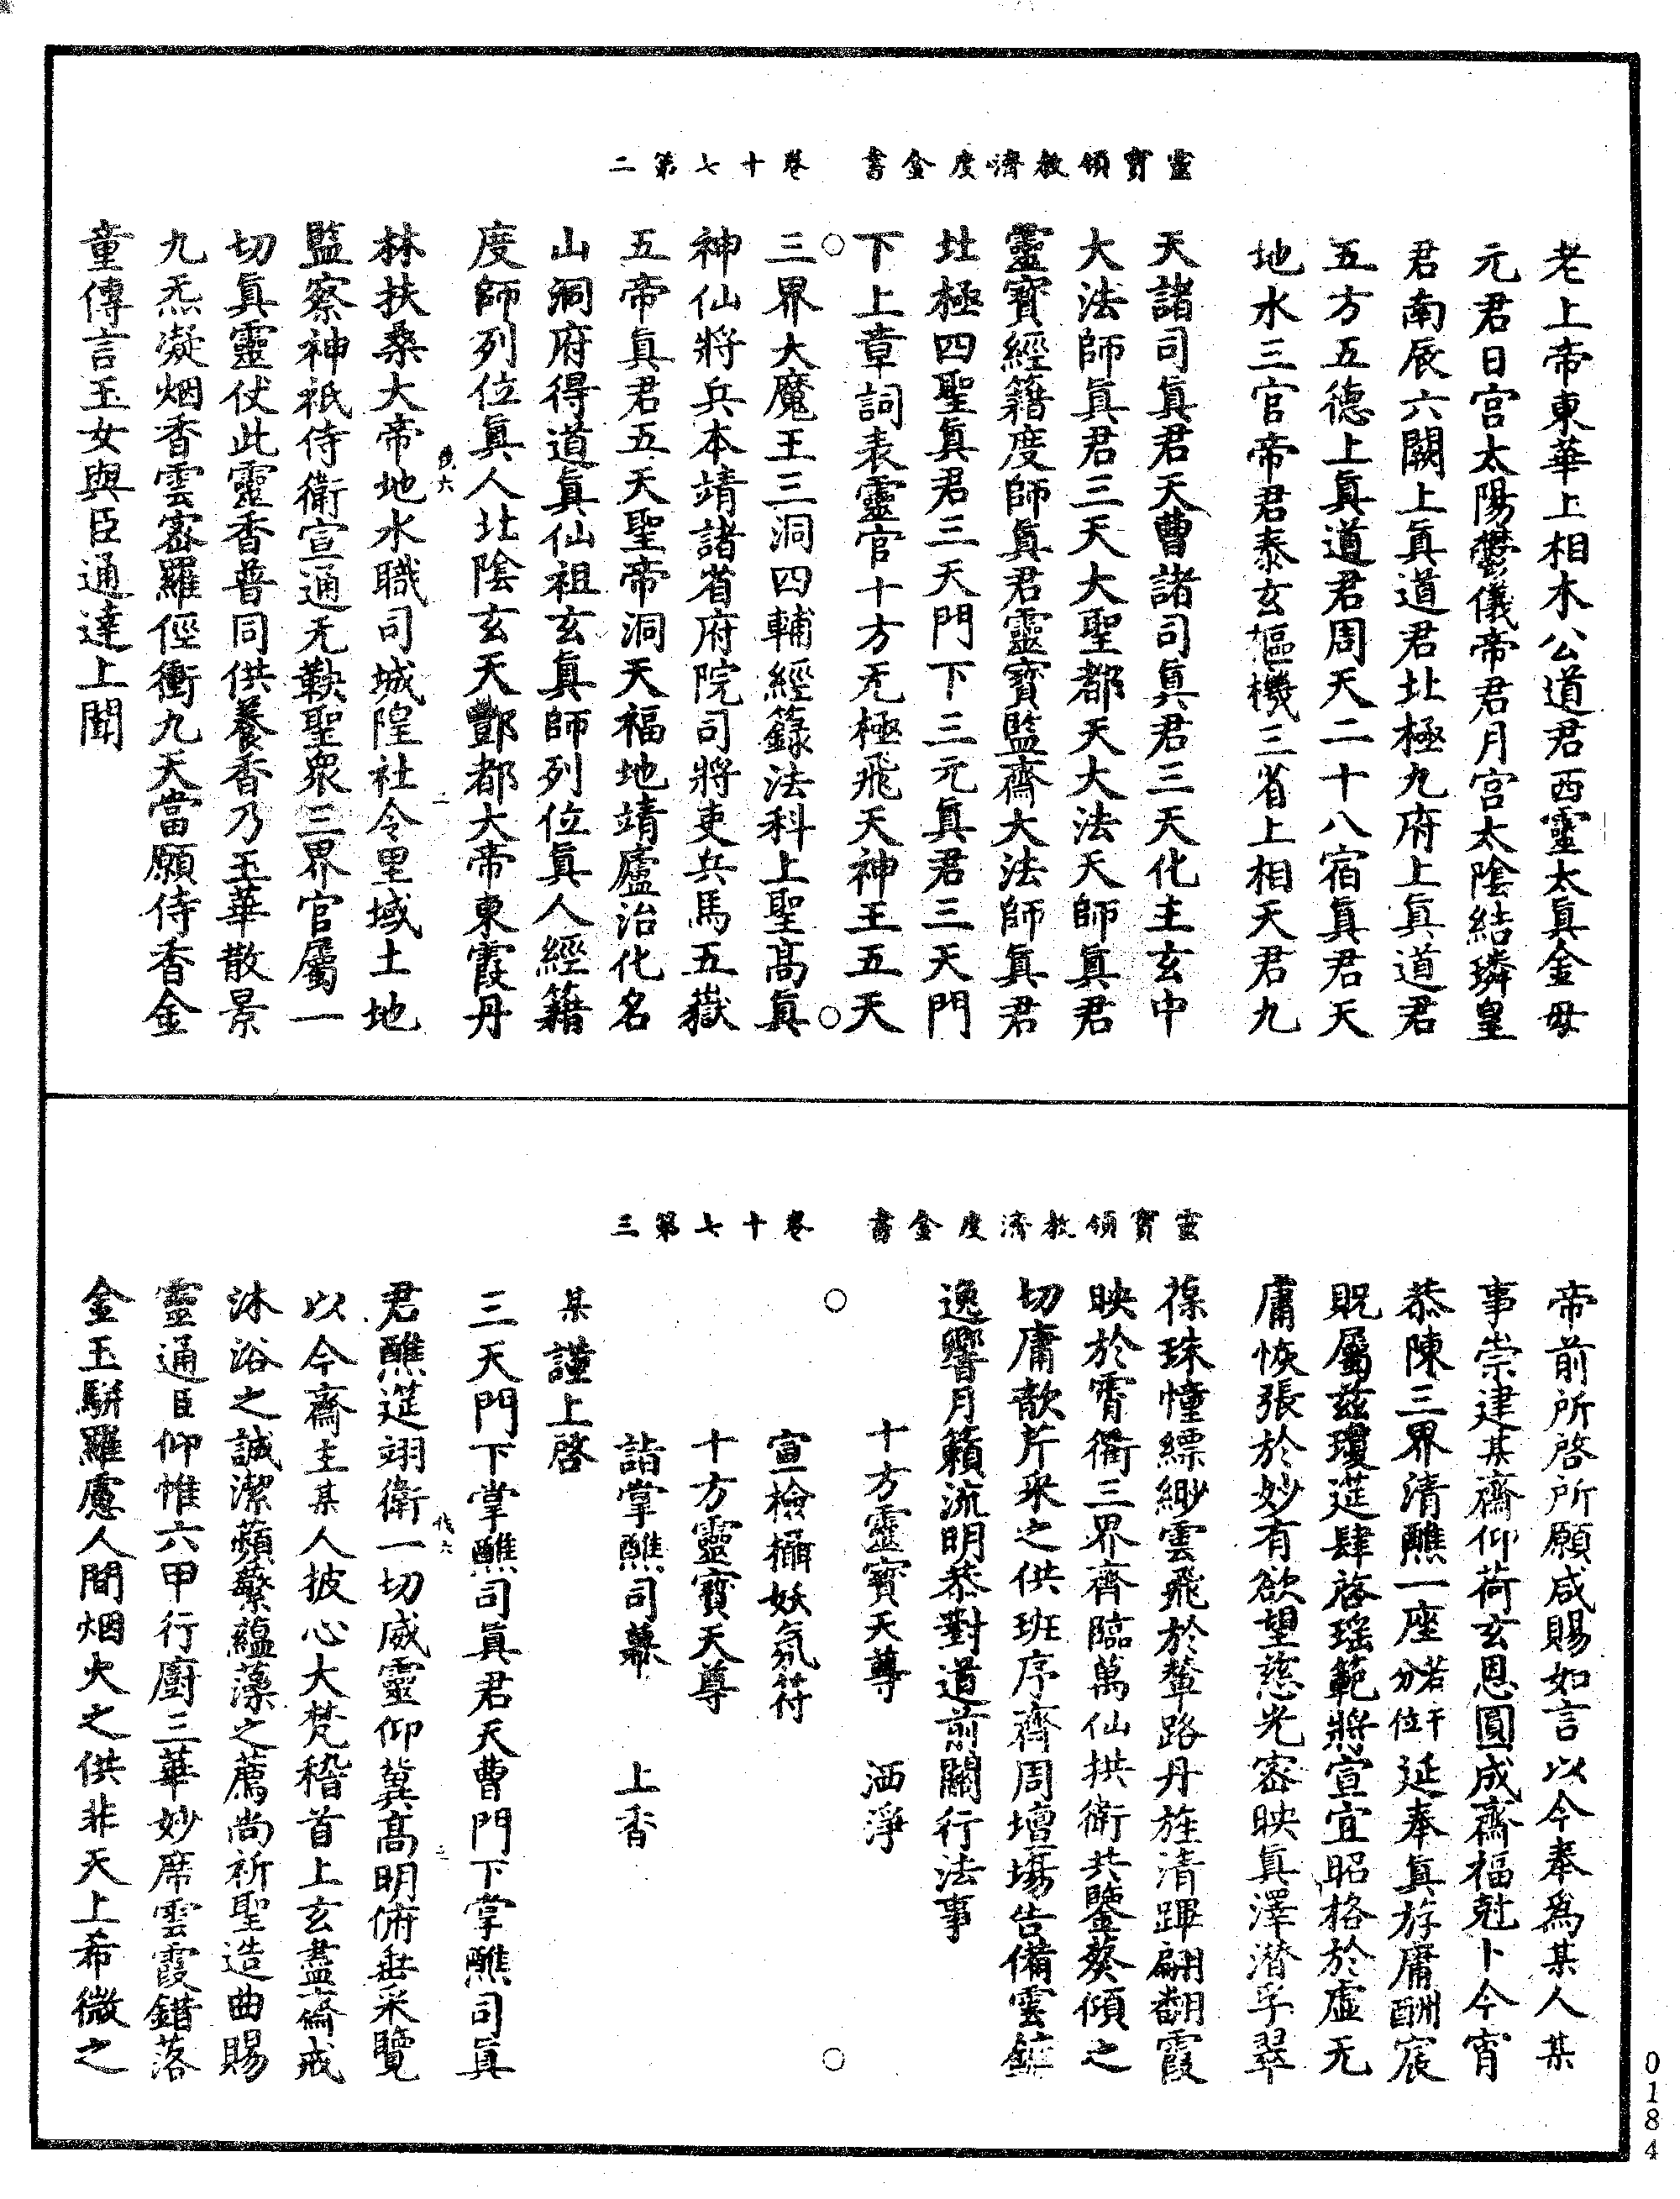 靈寶領教濟度金書 卷十七第二
老上帝東華上相木公道君西靈太真金母
元君日宮太陽鬱儀帝君月宮太陰結璘皇
君南辰六闕上真道君北極九府上真道君
五方五德上真道君周天二十八宿真君天
地水三官帝君泰玄樞機三省上相天君九
天諸司真君天曹諸司真君三天化主玄中
大法師真君三天大聖都天大法天師真君
靈寶經籍度師真君靈寶監齋大法師真君
北極四聖真君三天門下三元真君三天門
下上章詞表靈官十方无極飛天神王五天
三界大魔王三洞四輔經籙法科上聖高真
神仙將兵本靖諸省府院司將吏兵馬五嶽
五帝真君五天聖帝洞天福地靖廬治化名
山洞府得道真仙祖玄真師列位真人經籍
度師列位真人北陰玄天酆都大帝東霞丹
林扶桑大帝地水職司城隍社令里域土地
監察神祇侍衛宣通无鞅聖眾三界官屬一
切真靈仗此靈香普同供養香乃玉華散景
九炁凝烟香雲密羅徑衝九天當願侍香金
童傳言玉女與臣通達上聞
靈寶領教濟度金書 卷十七第三
帝前所啓所願咸賜如言以今奉爲某人某
事崇建某齋仰荷玄恩圓成齋福尅卜今宵
恭陳三界清醮一座分若干位延奉真斿庸酬宸
貺屬兹瓊筵肆啓瑤範將宣宜昭格於虛无
庸恢張於妙有欲望慈光密映真澤潜孚翠
葆珠幢縹緲雲飛於輦路丹旌清蹕翩翻霞
映於霄衢三界齊臨萬仙拱衛共鑒葵傾之
切庸歆芹采之供班序齊周壇場告備雲鏕
逸響月籟流明恭對道前關行法事
十方靈寶天尊 洒淨
宣檢攝妖氛符
十方靈寶天尊
詣掌醮司幕 上香
某謹上啓
三天門下掌醮司真君天曹門下掌醮司真
君醮筵翊衛一切威靈仰冀高明俯垂采覽
以今齋主某人披心大梵稽首上玄盡齋戒
沐浴之誠潔蘋蘩蘊藻之薦尚祈聖造曲賜
靈通臣仰惟六甲行廚三華妙席雲霞錯落
金玉駢羅慮人間烟火之供非天上希微之
0184